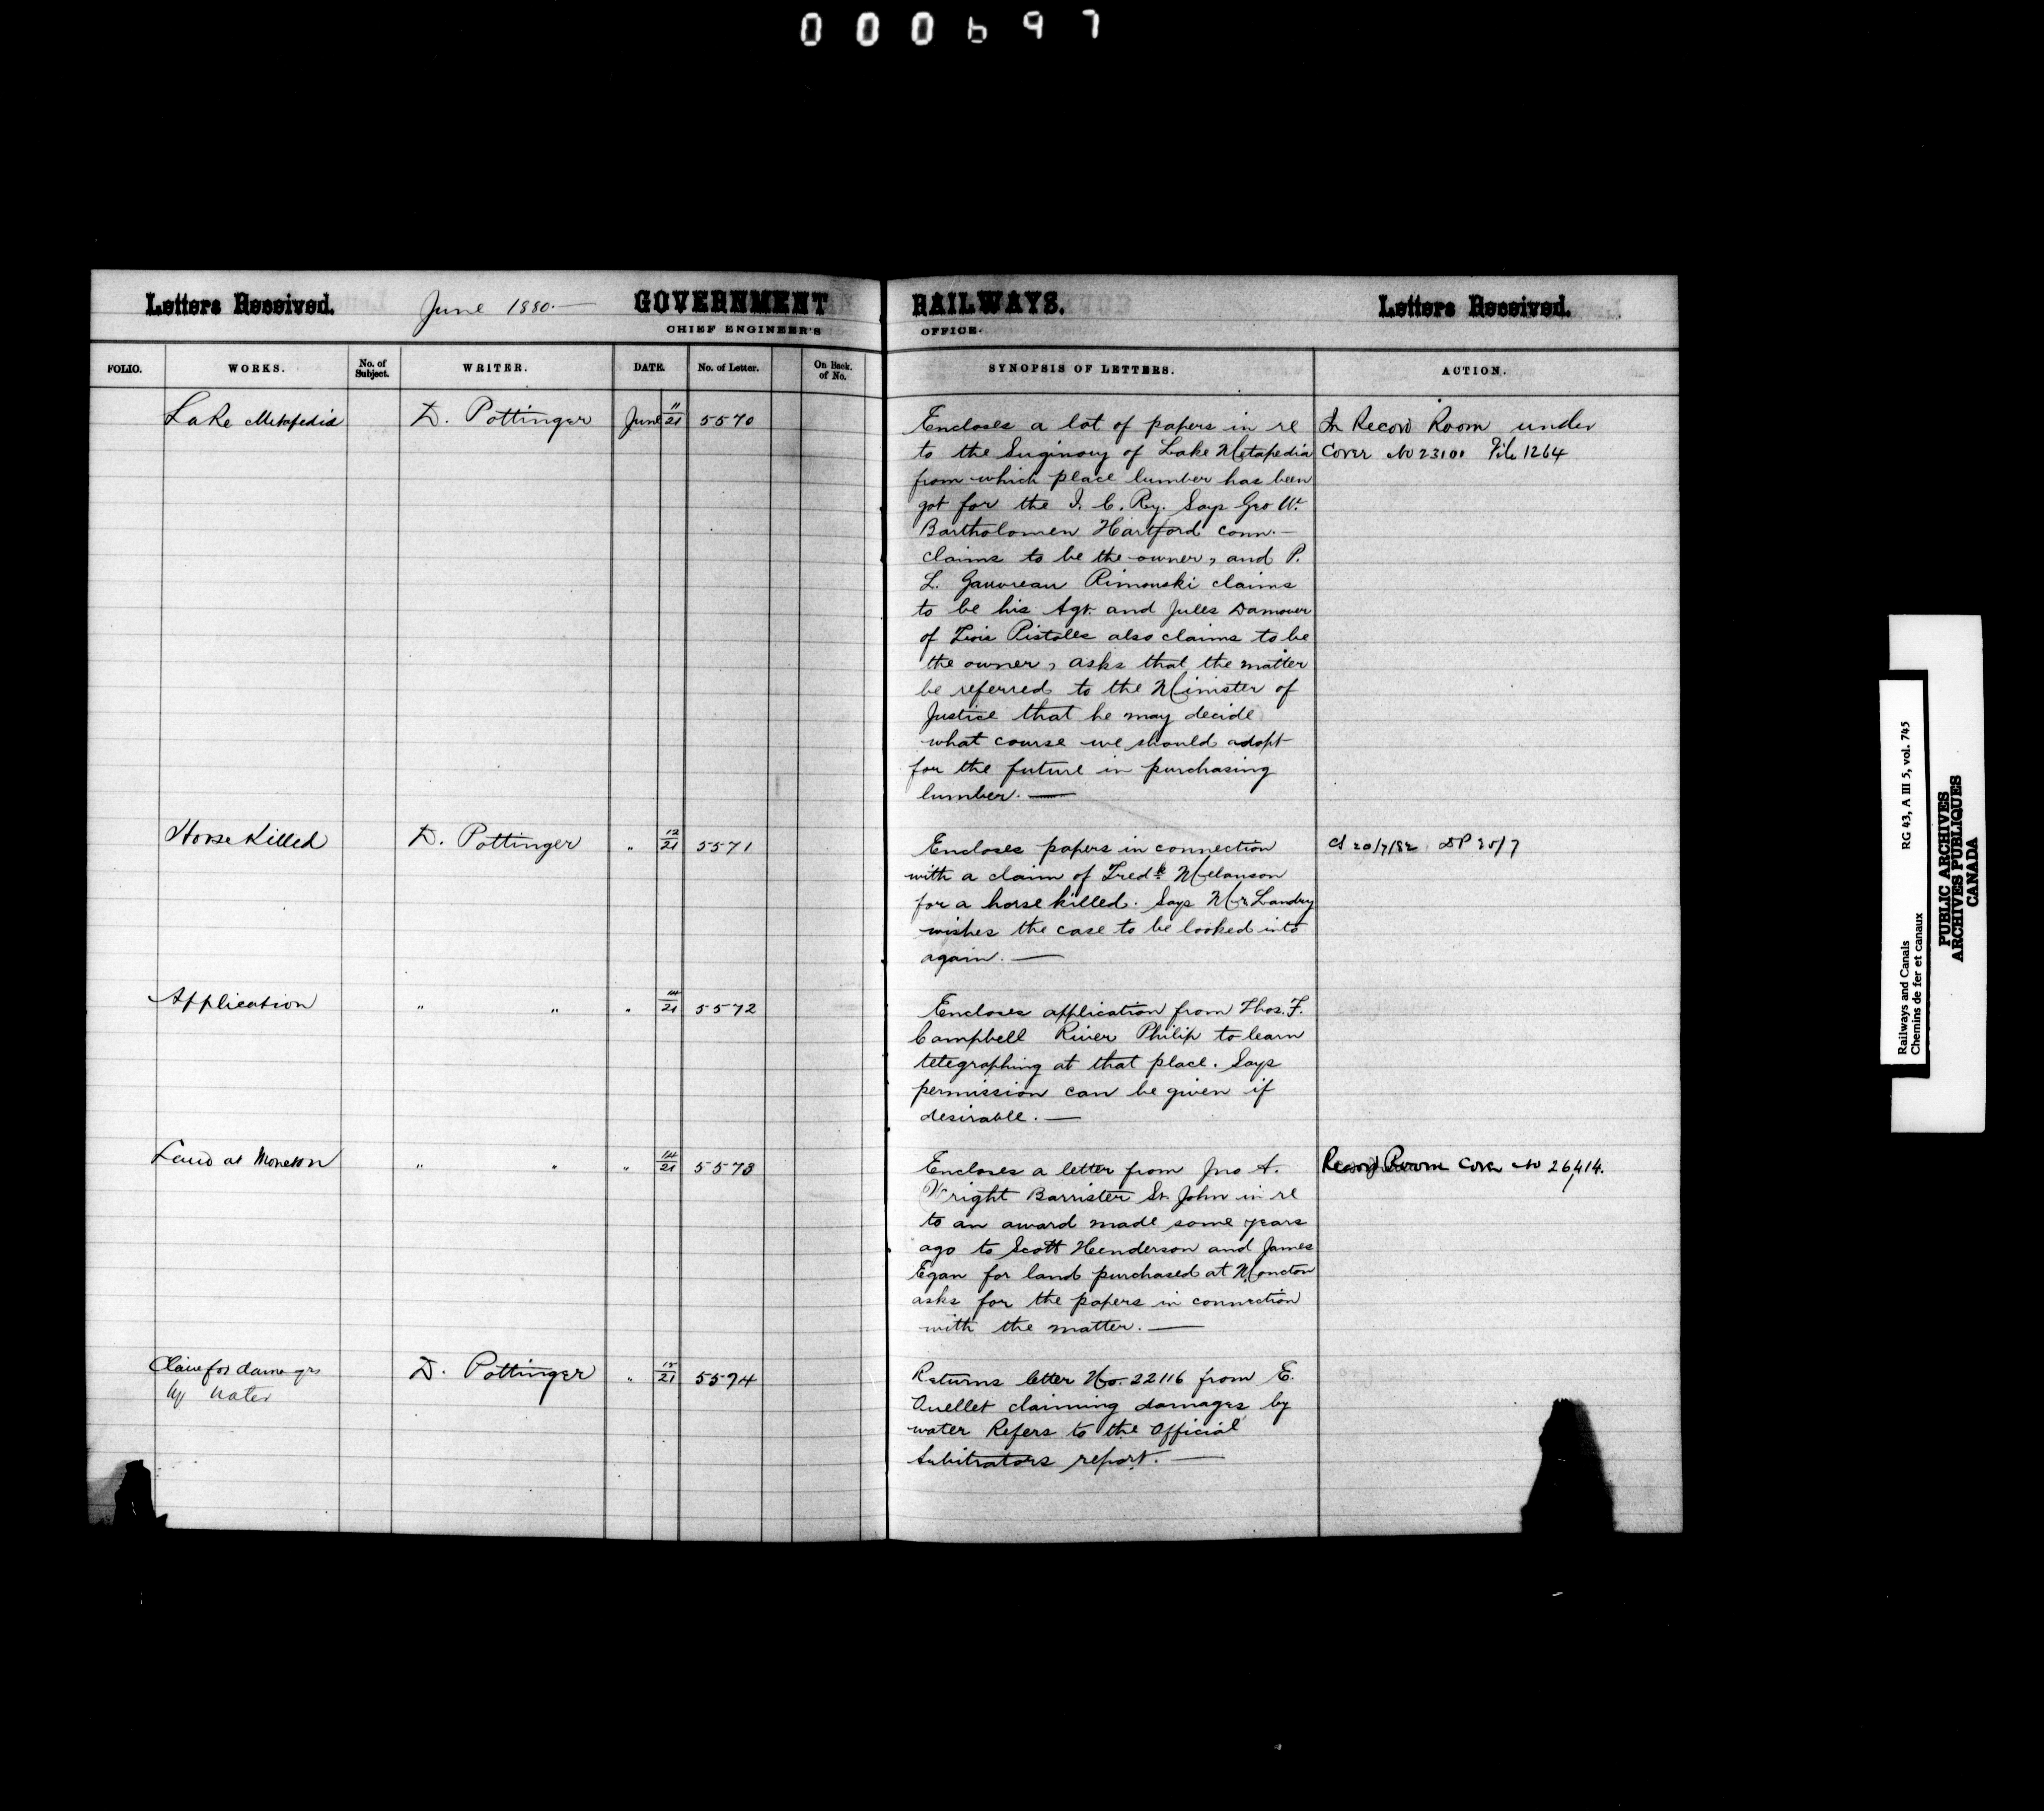 000697
Letters Received. June 1880.— GOVERNMENT RAILWAYS. Letters Received.
CHIEF ENGINEER'S OFFICE.
FOLIO. WORKS. No. of Subject. WRITER. DATE. No. of Letter. On Back. of No. SYNOPSIS OF LETTERS. ACTION.
Lake Metapedia D. Pottinger June 11/21 5570 Encloses a lot of papers in re In Record Room under
to the Suginory of Lake Metapedia Cover No 23101 File 1264
from which place lumber has been
got for the I. C. Ry. Says Geo W.
Bartholomen Hartford Conn.—
claims to be the owner, and P.
L. Gauvreau Rimouski claims
to be his Agt. and Jules Damour
of Trois Pistoles also claims to be
the owner, asks that the matter
be referred to the Minister of
Justice that he may decide
what course we should adopt
for the future in purchasing
lumber.—
Horse Killed D. Pottinger " 12/21 5571 Encloses papers in connection 20/7/82 DP 20/7
with a claim of Fredk Melanson
for a horse killed. Says Mr. Landry
wishes the case to be looked into
again.—
Application " " " 14/21 5572 Encloses application from Thos. F.
Campbell River Philip to learn
telegraphing at that place. Says
permission can be given if
desirable.—
Land at Moncton " " " 14/21 5573 Encloses a letter from Jno A. Record Room Cover No 26,414.
Wright Barrister St. John in re
to an award made some years
ago to Scott Henderson and James
Egan for land purchased at Moncton
asks for the papers in connection
with the matter.—
Claim for damages D. Pottinger " 15/21 5574 Returns letter No. 22116 from E.
by water Ouellet claiming damages by
water Refers to the Official
Arbitrators report.—
Railways and Canals RG 43, A III 5, vol. 745
Chemins de fer et canaux
PUBLIC ARCHIVES
ARCHIVES PUBLIQUES
CANADA